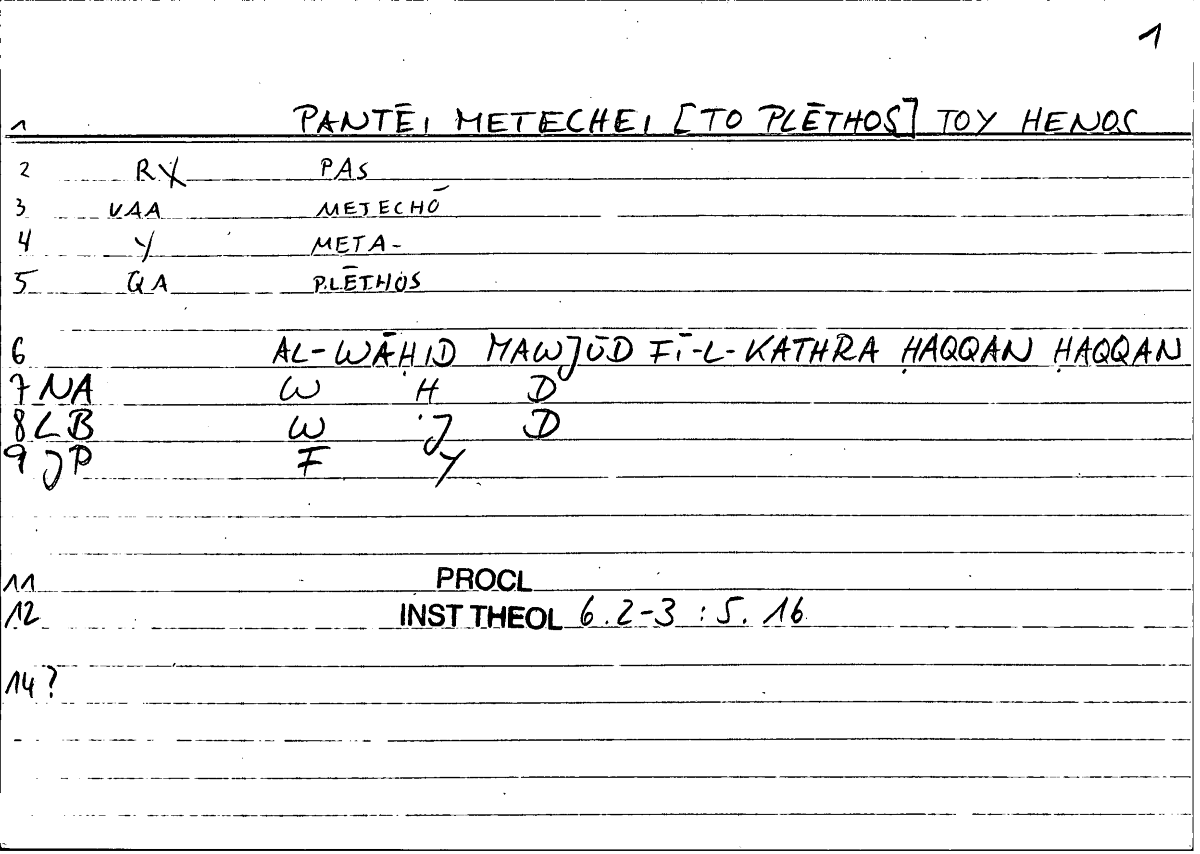 1
1 PANTĒI METECHEI [TO PLĒTHOS] TOY HENOS
2 RX PAS
3 VAA METECHŌ
4 Y META-
5 QA PLĒTHOS
6 AL-WĀḤID MAWJŪD FĪ-L-KATHRA ḤAQQAN ḤAQQAN
7 NA W Ḥ D
8 LB W J D
9 JP F Y
11 PROCL
12 INST THEOL 6.2-3 : 5.16
14?